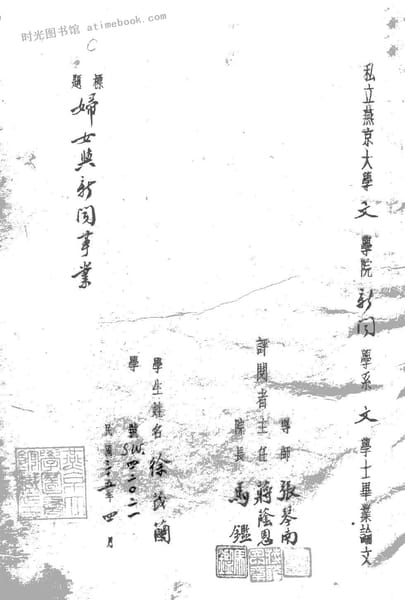 时光图书馆 atimebook.com
私立燕京大學文學院新聞學系文學士畢業論文
導師 張琴南
評閱者主任 蔣蔭恩
院長 馬鑑
學生姓名 徐 蘭
學號 S.W. 四二〇二一
民國三五年四月
標題 婦女與新聞事業